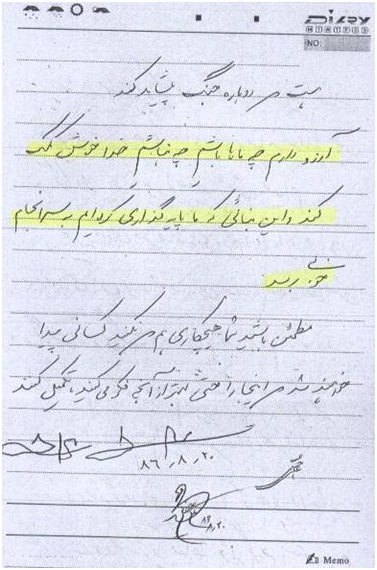 DIARY
MINIPGS
NO:
هست در دوباره جنگ پشاید کند
آرزو دارم چه با ما باشم چه نباشم خدا خوش کمک
کند و این بنائی که ما پایه گذاری کرده‌ایم به سرانجام
خوبی برسد
مطمئن باشید شما هیچکاری هم در نکنید کسانی پیدا
خواهند شد در اینجا را حتی بهتر از آنچه فکر می‌کنید، تکمیل کنند
۸۶٫۸٫۲۰
۸۶٫۸٫۲۰
Memo